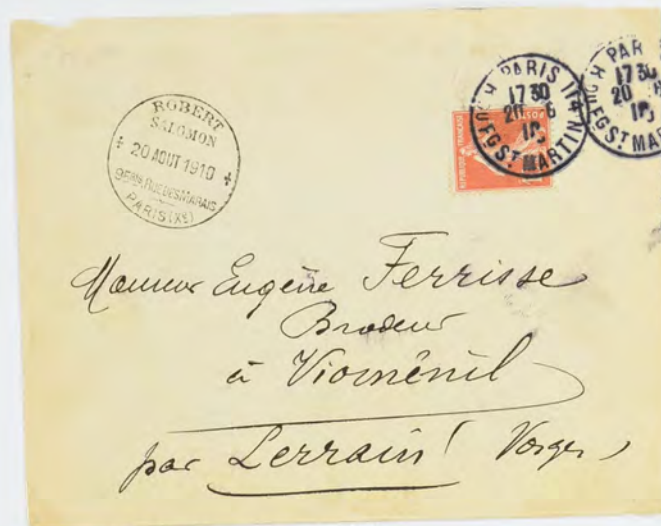 ROBERT
SALOMON
20 AOUT 1910
95bis, RUE DES MARAIS
PARIS (Xe)
PARIS 114
17 30
20
10
R. DU FG ST MARTIN
PAR
17 30
20
10
R. DU FG ST MA
POSTES
REPUBLIQUE FRANÇAISE
Monsieur Eugène Ferrisse
Brodeur
à Vioménil
par Lerrain Vosges